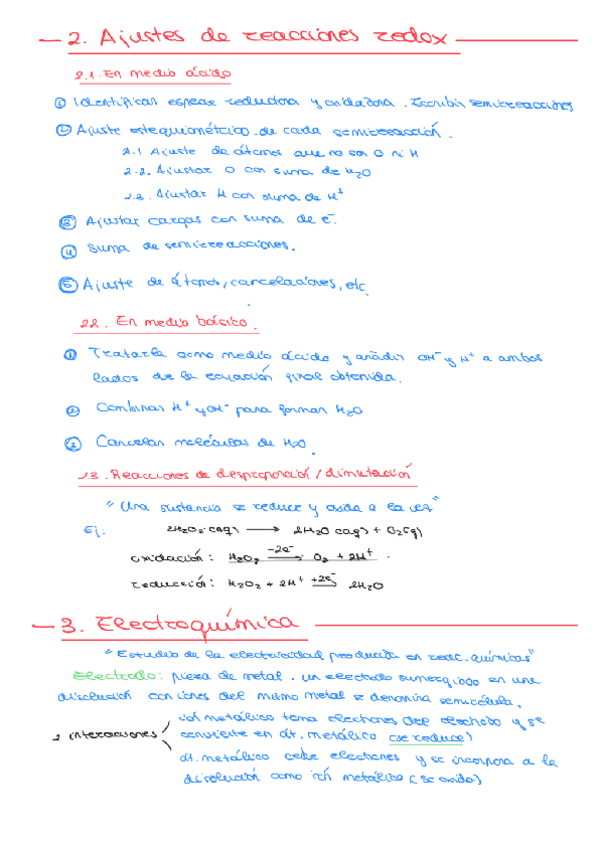 2. Ajustes de reacciones redox
2.1. En medio ácido
① Identificar especie reductora y oxidadora. Escribir semirreacciones
② Ajuste estequiométrico de cada semirreacción.
2.1 Ajuste de átomos que no son O ni H
2.2. Ajustar O con suma de H₂O
2.3. Ajustar H con suma de H⁺
③ Ajustar cargas con suma de e⁻.
④ Suma de semirreacciones.
⑤ Ajuste de átomos, cancelaciones, etc
2.2. En medio básico.
① Tratarla como medio ácido y añadir OH⁻ y H⁺ a ambos
lados de la ecuación final obtenida.
② Combinar H⁺ y OH⁻ para formar H₂O
③ Cancelar moléculas de H₂O.
2.3. Reacciones de desproporción / dimutación
"Una sustancia se reduce y oxida a la vez"
Ej: 2H₂O₂ (aq) → 2H₂O (aq) + O₂(g)
oxidación: H₂O₂ -2e⁻→ O₂ + 2H⁺
reducción: H₂O₂ + 2H⁺ +2e⁻→ 2H₂O
3. Electroquímica
"Estudio de la electricidad producida en reac. químicas"
Electrodo: pieza de metal. un electrodo sumergido en una
disolución con iones del mismo metal se denomina semicélula.
ion metálico toma electrones del electrodo y se
2 interacciones convierte en át. metálico (se reduce)
át. metálico cede electrones y se incorpora a la
disolución como ión metálico (se oxida)